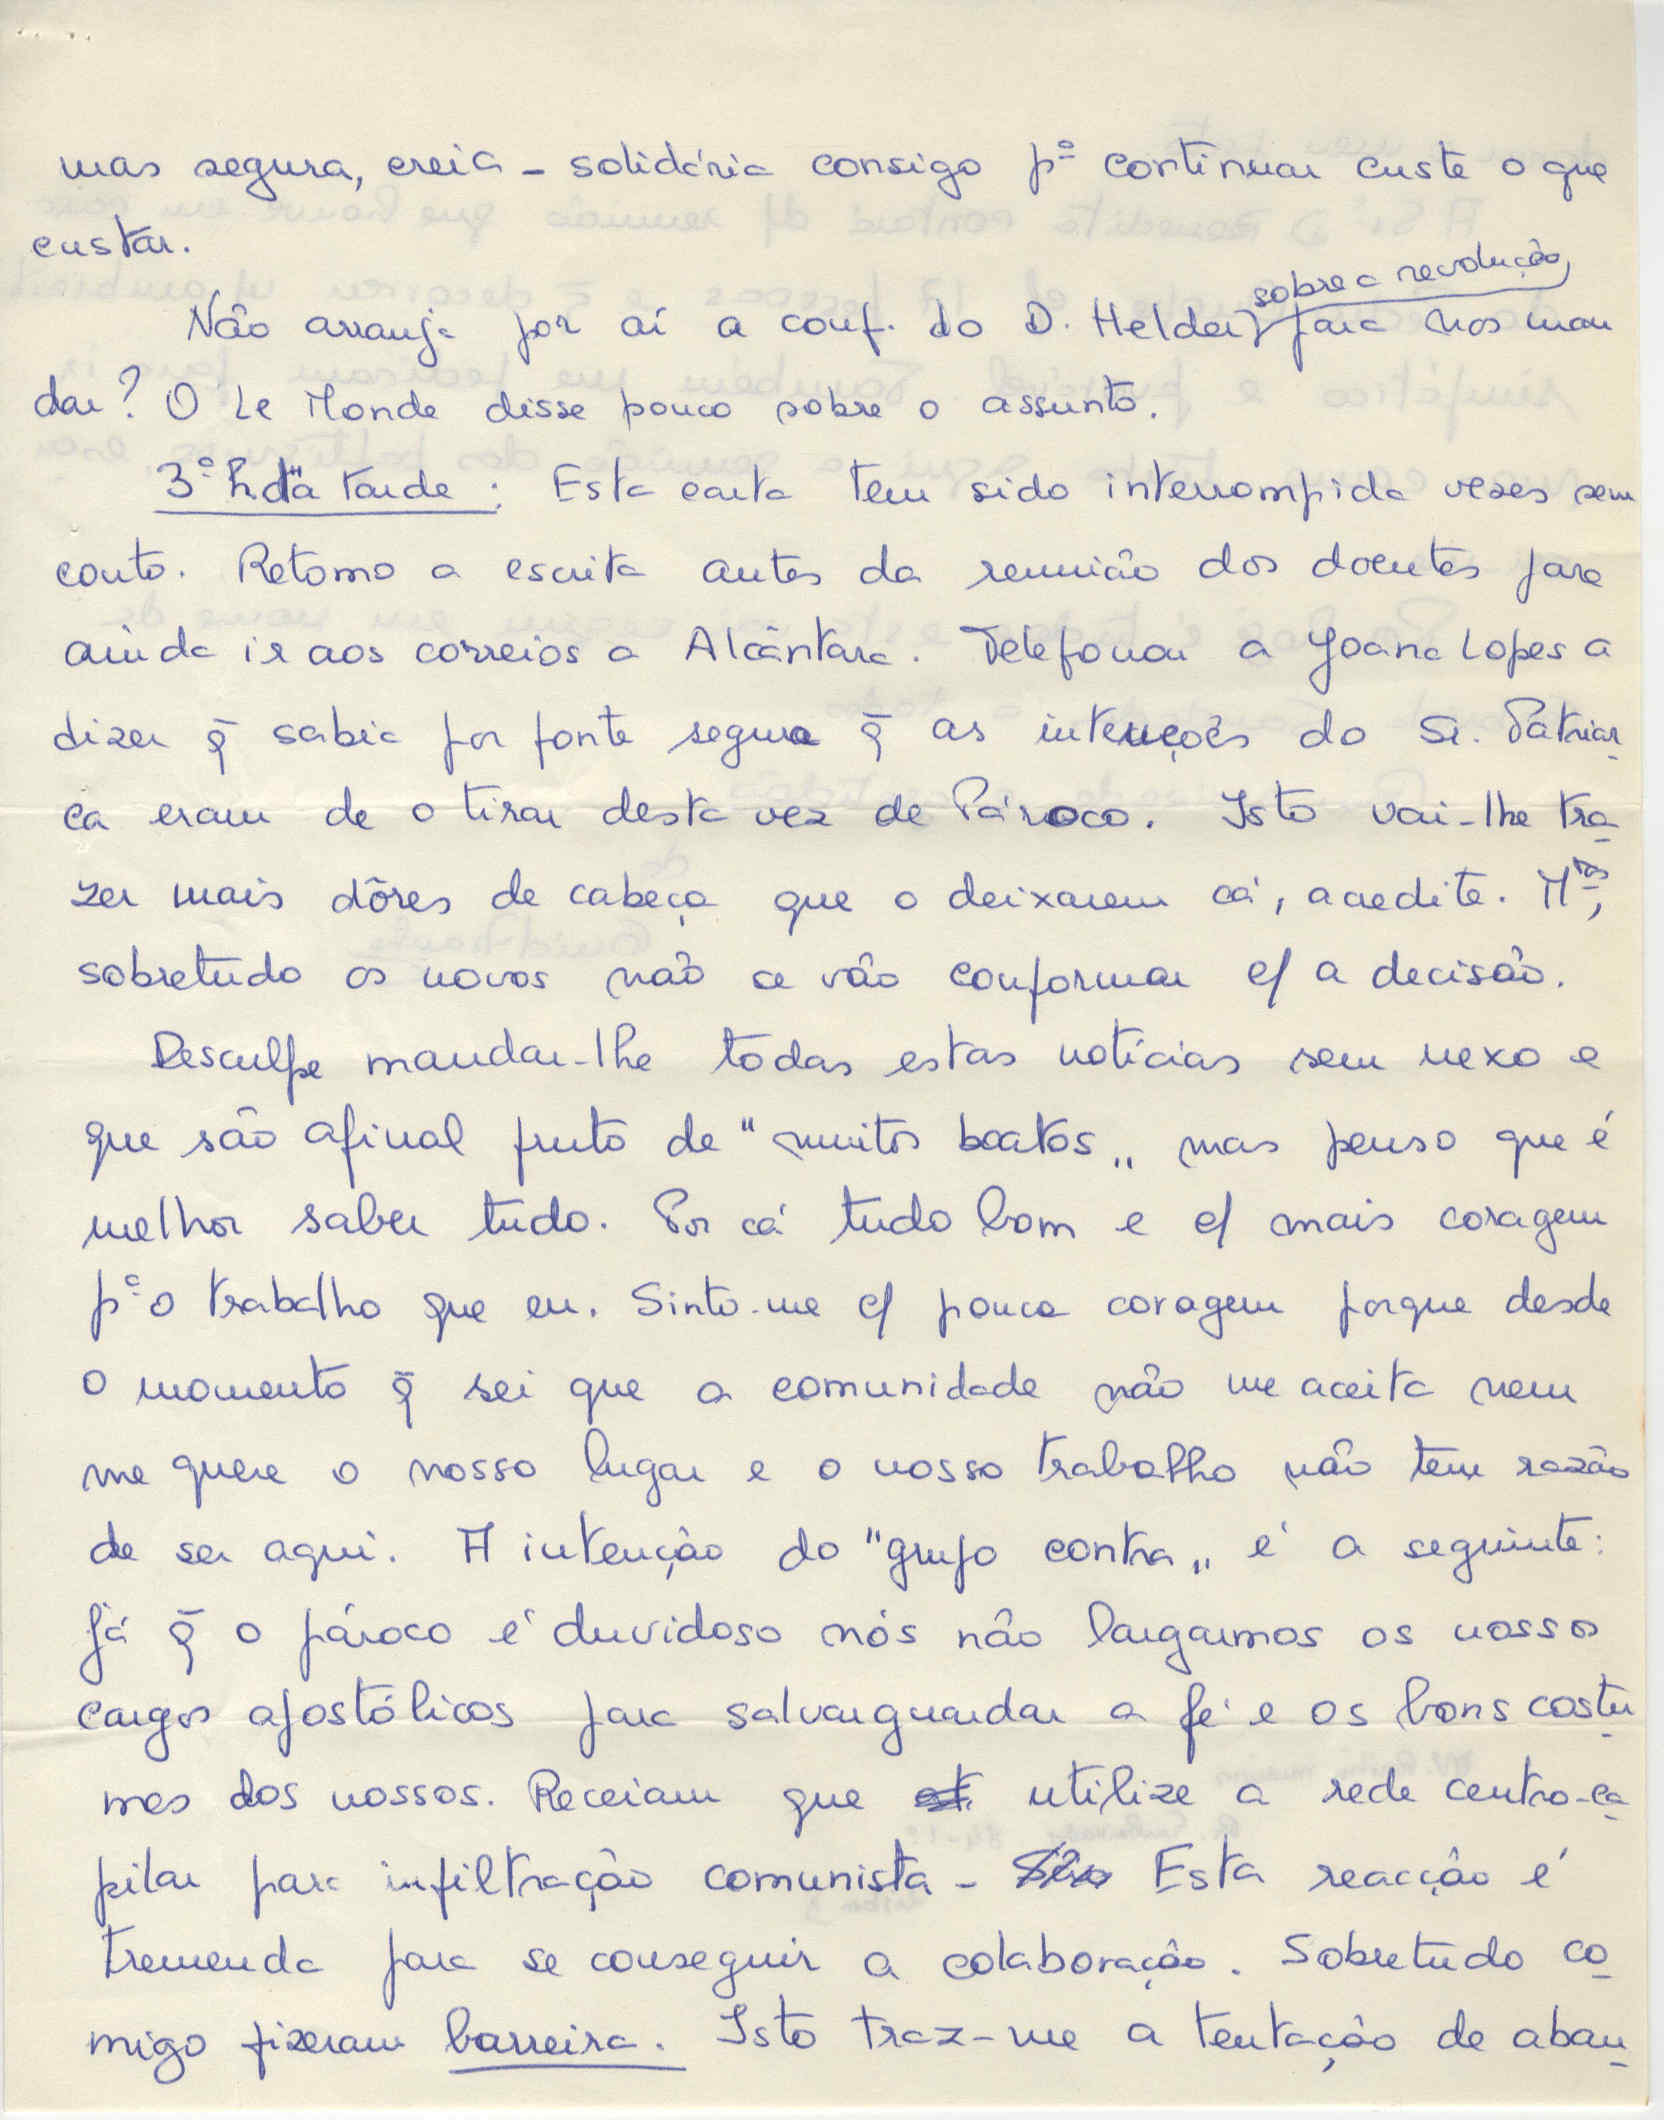 mas segura, creia - solidária consigo pª continuar custe o que
custar.
Não arranja por aí a conf. do D. Helder sobre a revolução, para nos man
dar? O Le Monde disse pouco sobre o assunto.
3ª à tarde: Esta carta tem sido interrompida vezes sem
conto. Retomo a escrita antes da reunião dos doentes para
ainda ir aos correios a Alcântara. Telefonou a Joana Lopes a
dizer q̄ sabia por fonte segura q̄ as intenções do Sr. Patriar
ca eram de o tirar desta vez de Pároco. Isto vai-lhe tra
zer mais dôres de cabeça que o deixarem cá, acredite. Mtos,
sobretudo os novos não se vão conformar c/ a decisão.
Desculpe mandar-lhe todas estas notícias sem nexo e
que são afinal fruto de "muitos boatos„ mas penso que é
melhor saber tudo. Por cá tudo bom e c/ mais coragem
pª o trabalho que eu. Sinto-me c/ pouca coragem porque desde
o momento q̄ sei que a comunidade não me aceita nem
me quere o nosso lugar e o nosso trabalho não tem razão
de ser aqui. A intenção do "grupo contra„ é a seguinte:
Já q̄ o pároco é duvidoso nós não largarmos os nossos
cargos apostólicos para salvarguardar a fé e os bons costu
mes dos nossos. Receiam que utilize a rede centro-ca
pilar para infiltração comunista - Esta reacção é
tremenda para se conseguir a colaboração. Sobretudo co
migo fizeram barreira. Isto traz-me a tentação de aban